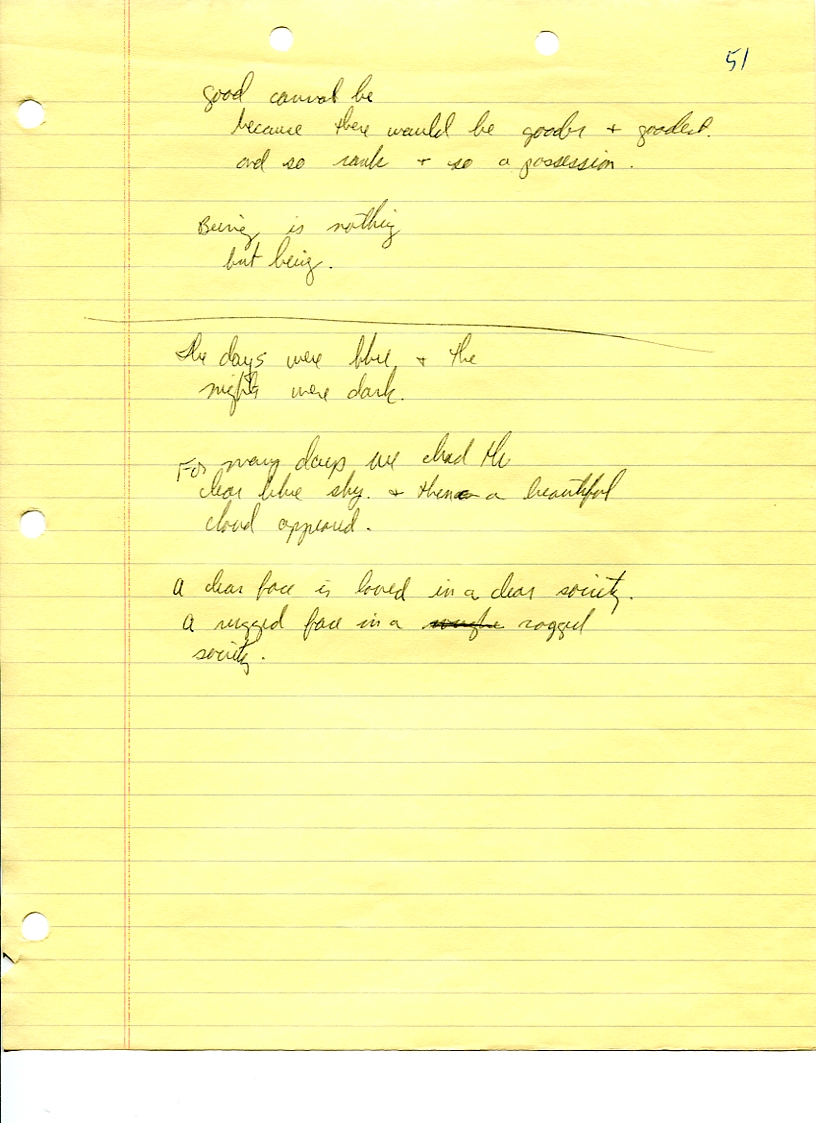 51
good cannot be
because there would be gooder + goodest.
and so rank + so a possession.
Being is nothing
but being.
The days were blue + the
nights were dark.
For many days we had the
clear blue sky. + then a beautiful
cloud appeared.
A clear face is loved in a clear society.
A rugged face in a rugged
society.